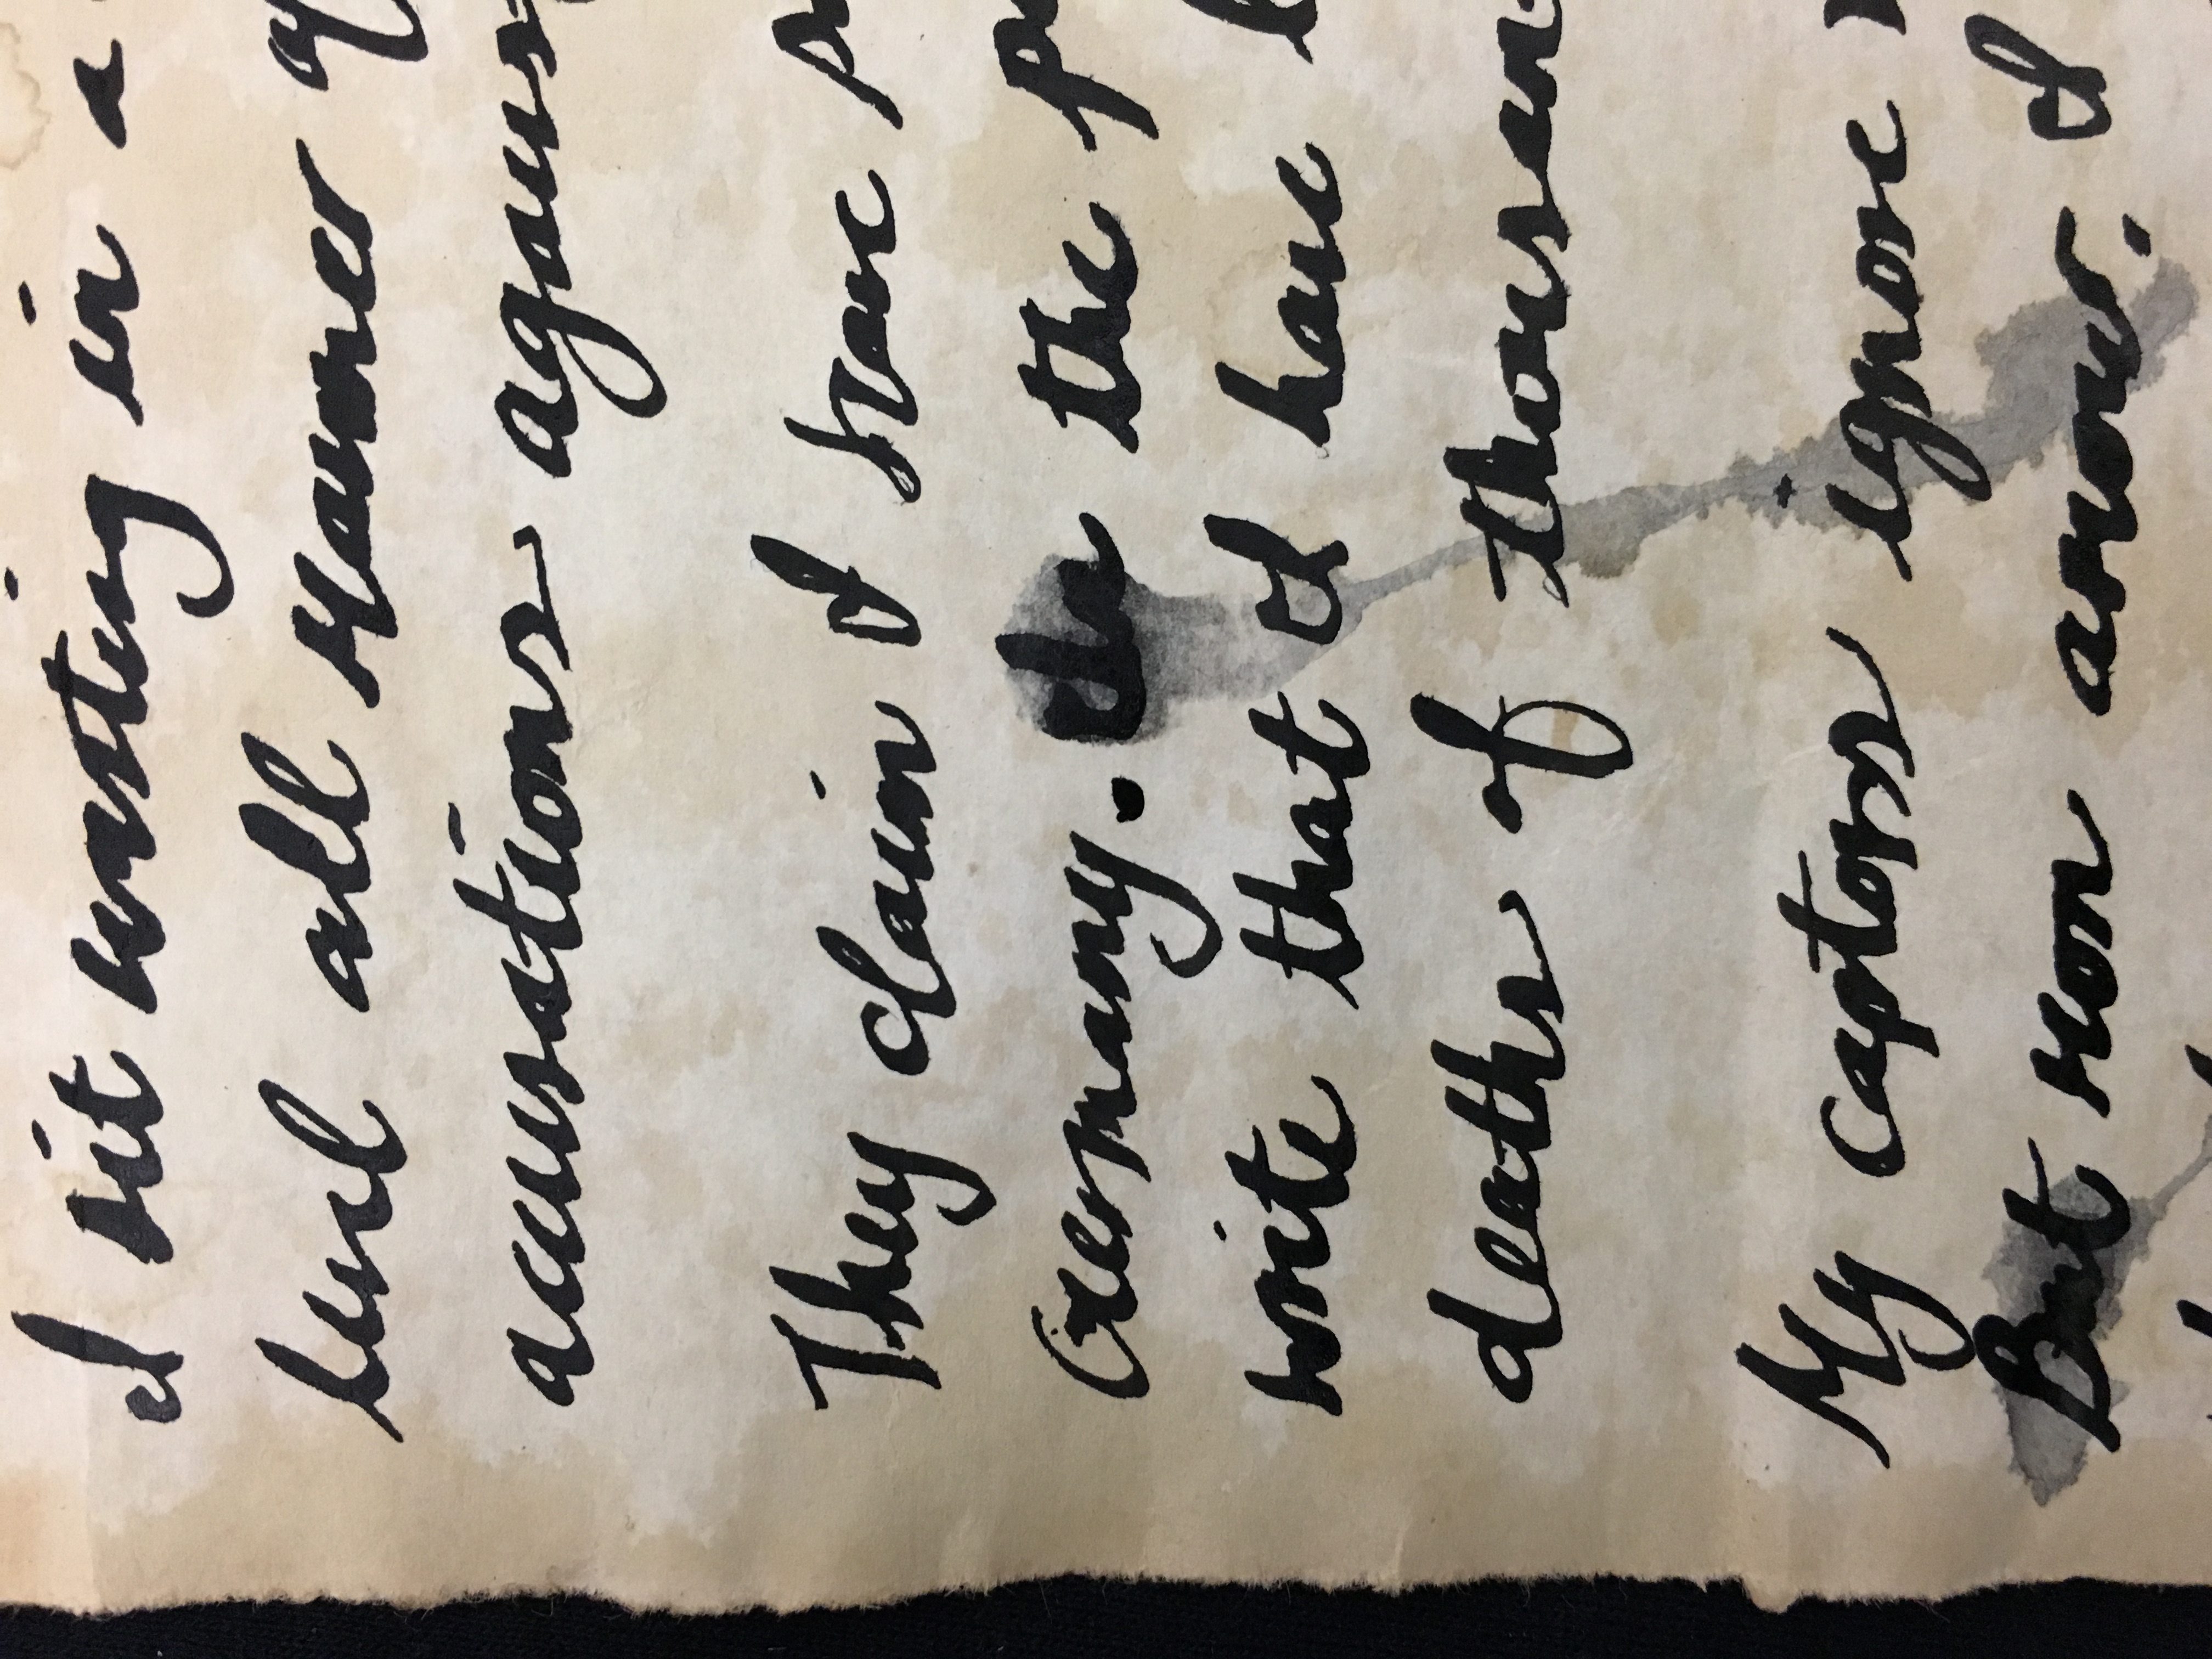 I sit wasting in a
level all manner of
accusations agains
They claim I have
Germany. In the
write that I have
deaths of thousan
My captors ignore
But mon amour, I